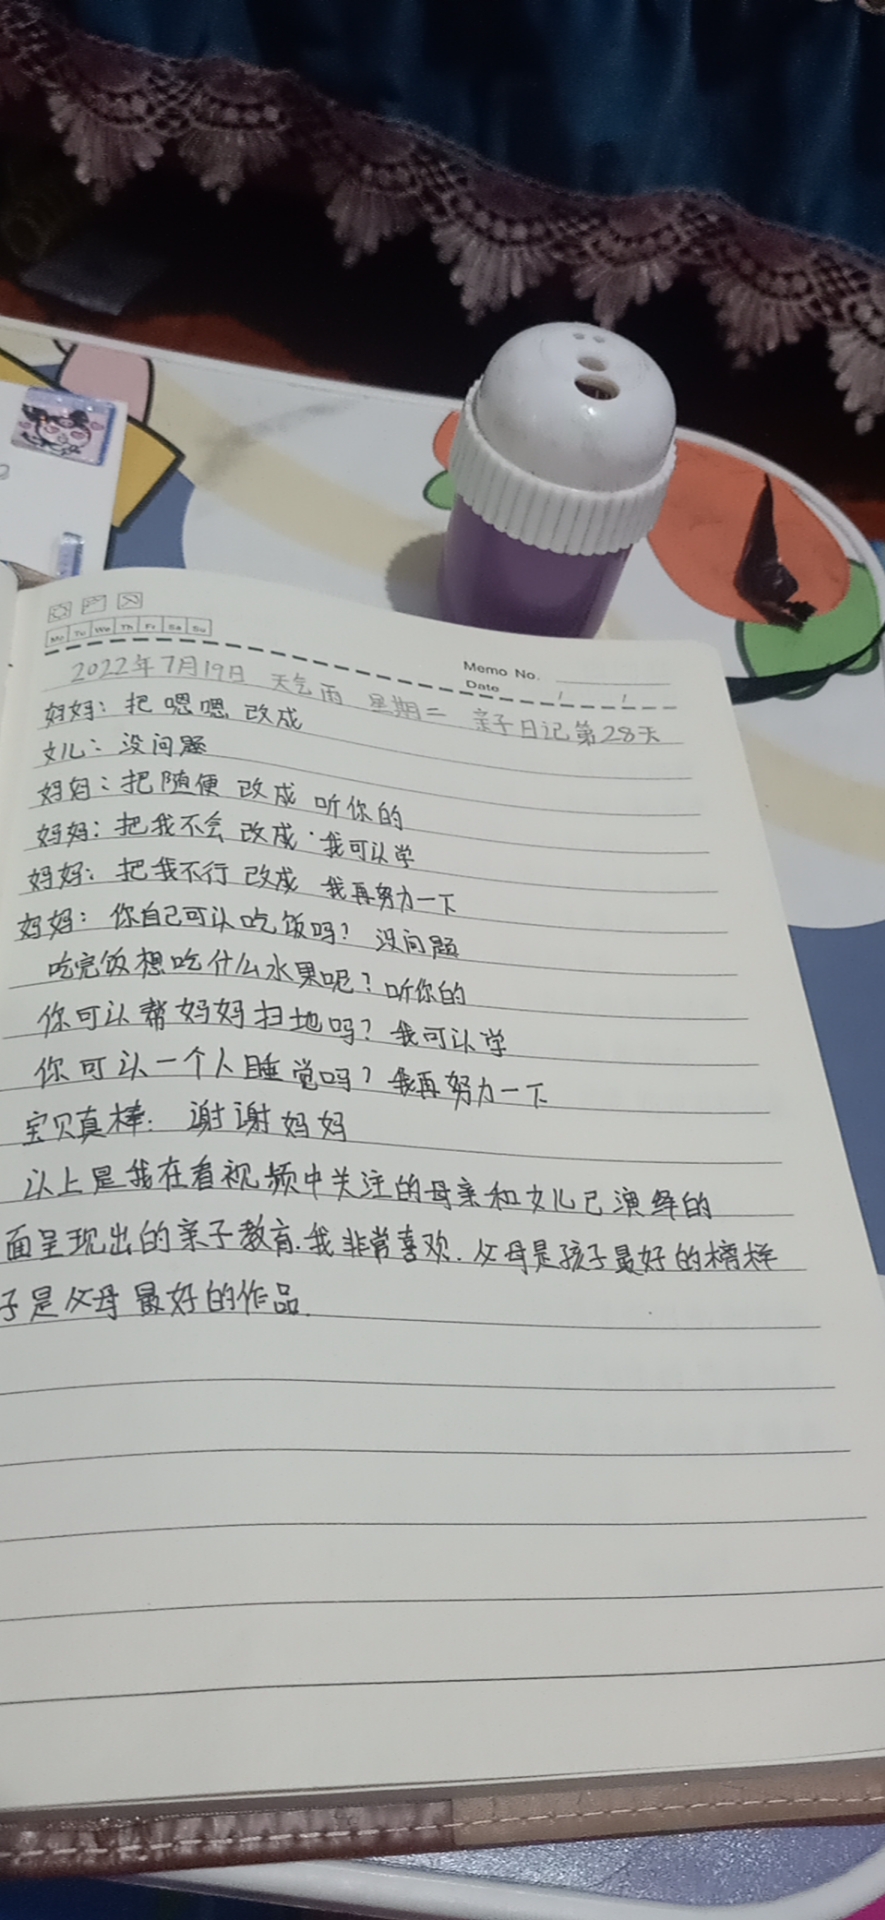 Mo Tu We Th Fr Sa Su
Memo No.
Date / /
2022年7月19日 天气雨 星期二 亲子日记第28天
妈妈：把嗯嗯 改成
女儿：没问题
妈妈：把随便 改成 听你的
妈妈：把我不会 改成·我可以学
妈妈：把我不行 改成 我再努力一下
妈妈：你自己可以吃饭吗？没问题
吃完饭想吃什么水果呢？听你的
你可以帮妈妈扫地吗？我可以学
你可以一个人睡觉吗？我再努力一下
宝贝真棒：谢谢妈妈
以上是我在看视频中关注的母亲和女儿已演绎的
面呈现出的亲子教育.我非常喜欢.父母是孩子最好的榜样
子是父母最好的作品.